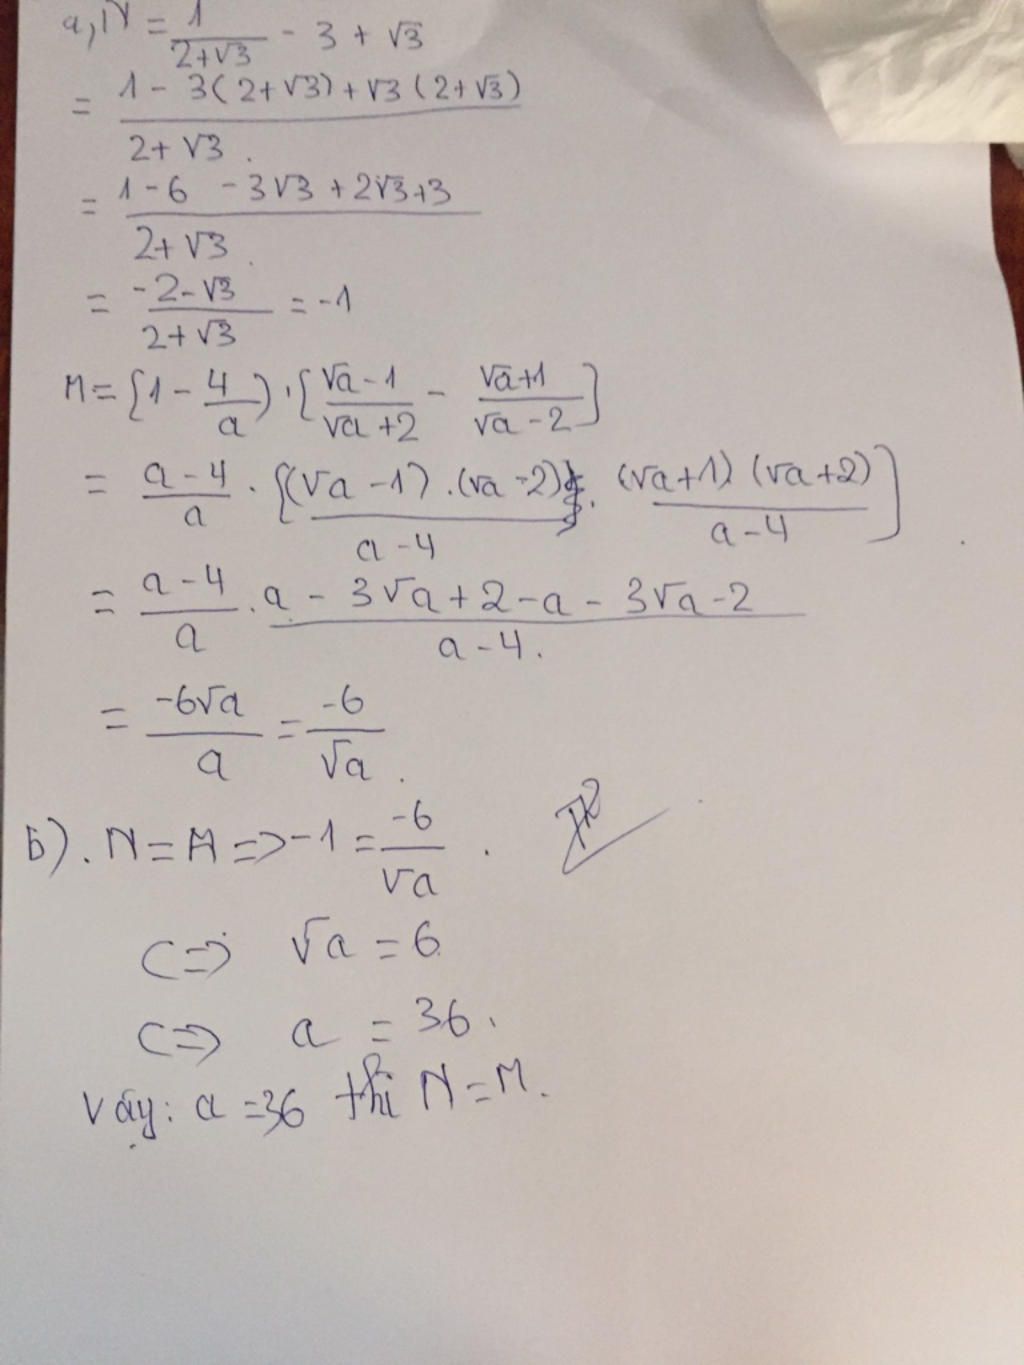 a, N = 1/(2+√3) - 3 + √3
= (1 - 3(2+√3) + √3(2+√3))/(2+√3).
= (1-6 -3√3+2√3+3)/(2+√3).
= (-2-√3)/(2+√3) = -1
M = (1 - 4/a) · [(√a-1)/(√a+2) - (√a+1)/(√a-2)]
= (a-4)/a · [(√a-1).(√a-2)/(a-4) . (√a+1)(√a+2)/(a-4)]
= (a-4)/a . (a - 3√a+2-a-3√a-2)/(a-4).
= -6√a/a = -6/√a.
b). N = M => -1 = -6/√a.
<=> √a = 6
<=> a = 36.
Vậy: a = 36 thì N = M.